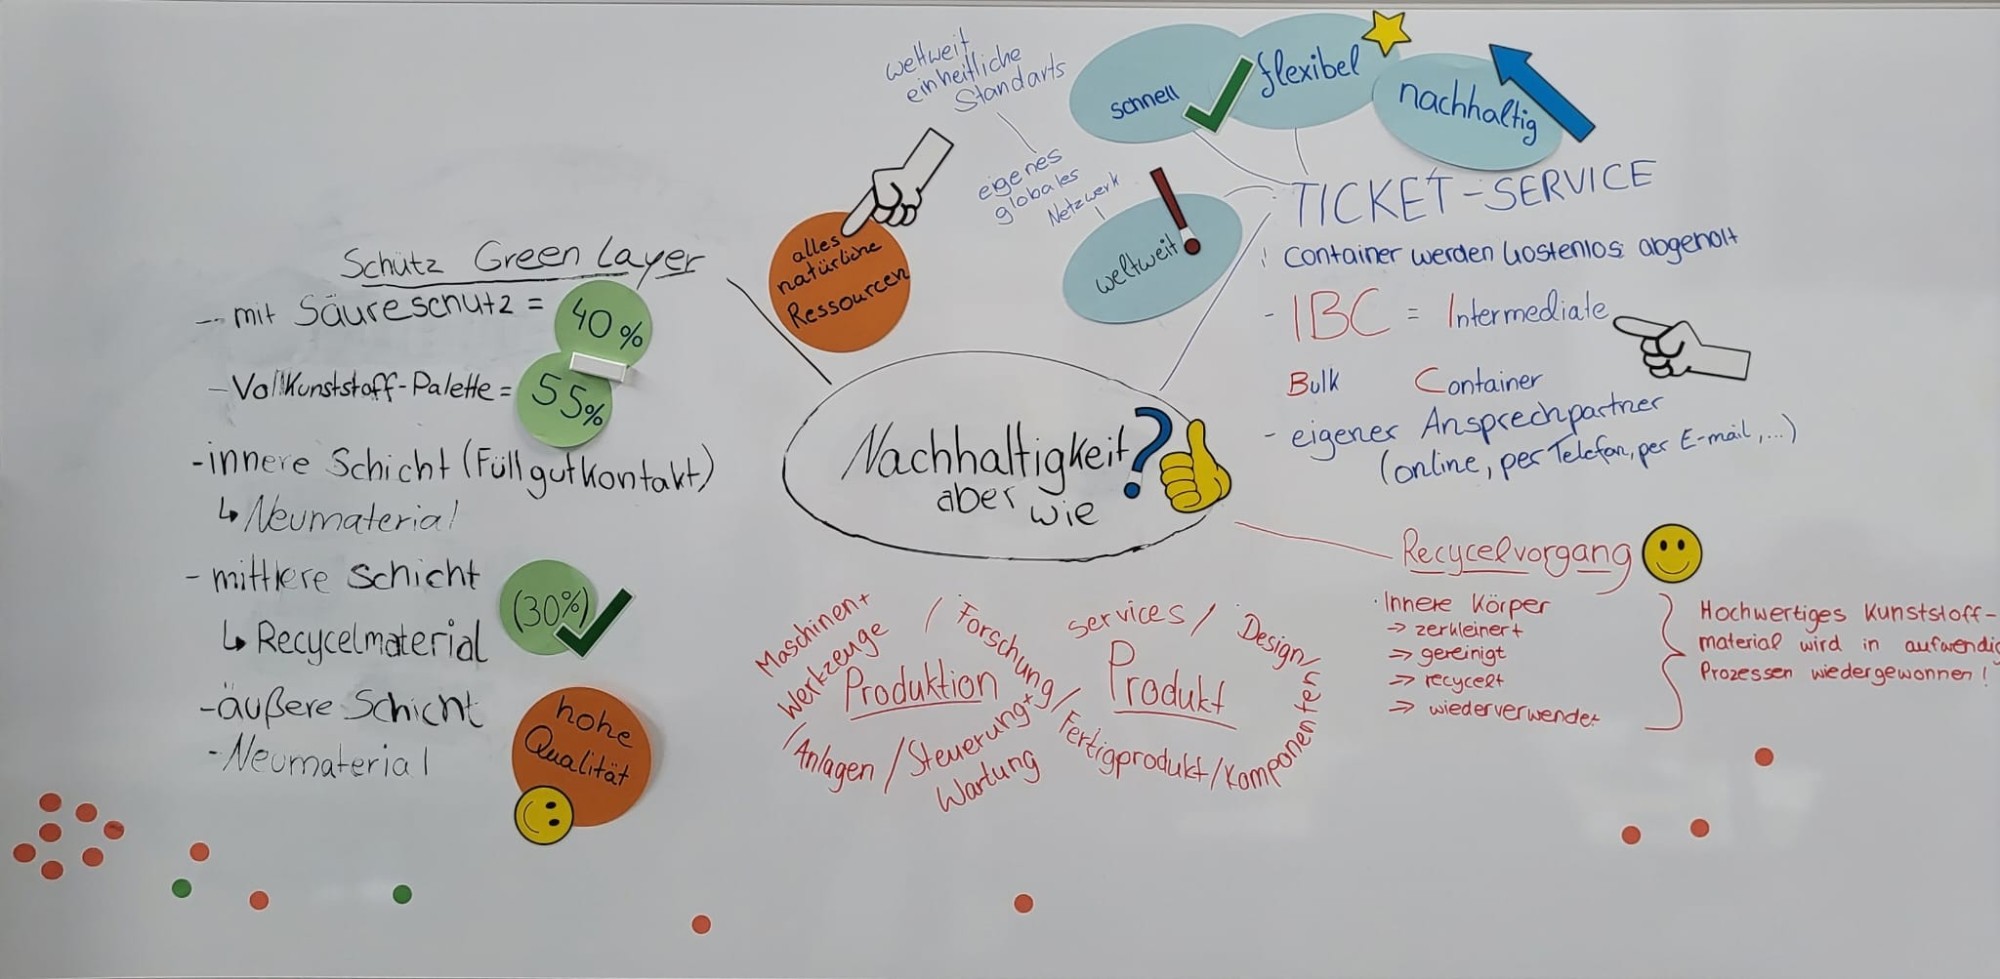 Schütz Green Layer
- mit Säureschutz = 40%
- Vollkunststoff-Palette = 55%
- innere Schicht (Füllgutkontakt)
↳ Neumaterial
- mittlere Schicht (30%)
↳ Recycelmaterial
- äußere Schicht
- Neumaterial
hohe
Qualität
alles
natürliche
Ressourcen
weltweit
einheitliche
Standarts
eigenes
globales
Netzwerk
weltweit
schnell
flexibel
nachhaltig
TICKET-SERVICE
Container werden kostenlos abgeholt
- IBC = Intermediate
Bulk Container
- eigener Ansprechpartner
(online, per Telefon, per E-mail, ...)
Nachhaltigkeit ?
aber wie
Maschinen+
Werkzeuge
/ Forschung/
Produktion
/Anlagen / Steuerung+
Wartung
Services / Design/
Produkt
Fertigprodukt/Komponenten
Recycelvorgang
· Innere Körper
-> zerkleinert
=> gereinigt
-> recycelt
=> wiederverwendet
Hochwertiges Kunststoff-
material wird in aufwendig
Prozessen wiedergewonnen!